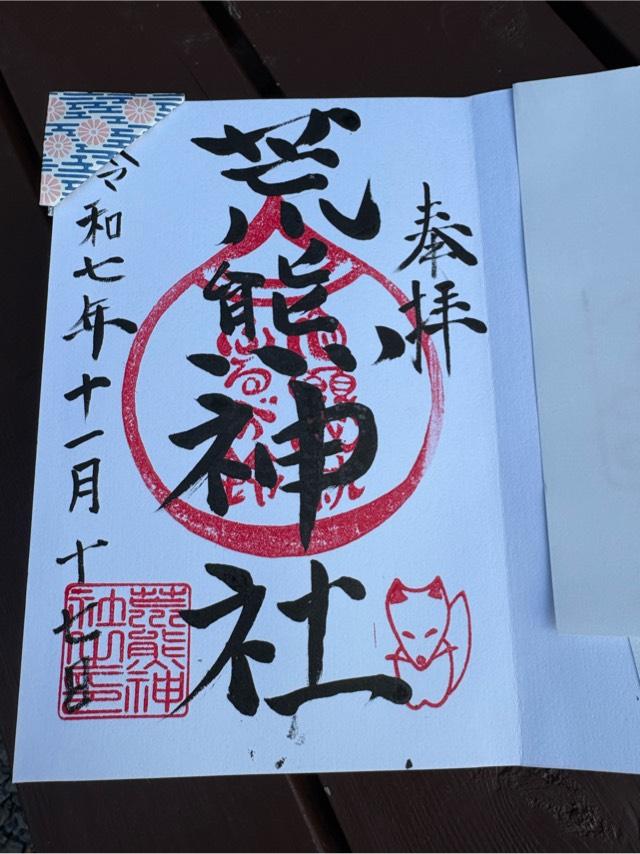 奉拝
荒熊神社
令和七年十一月十七日
荒熊神
社之印